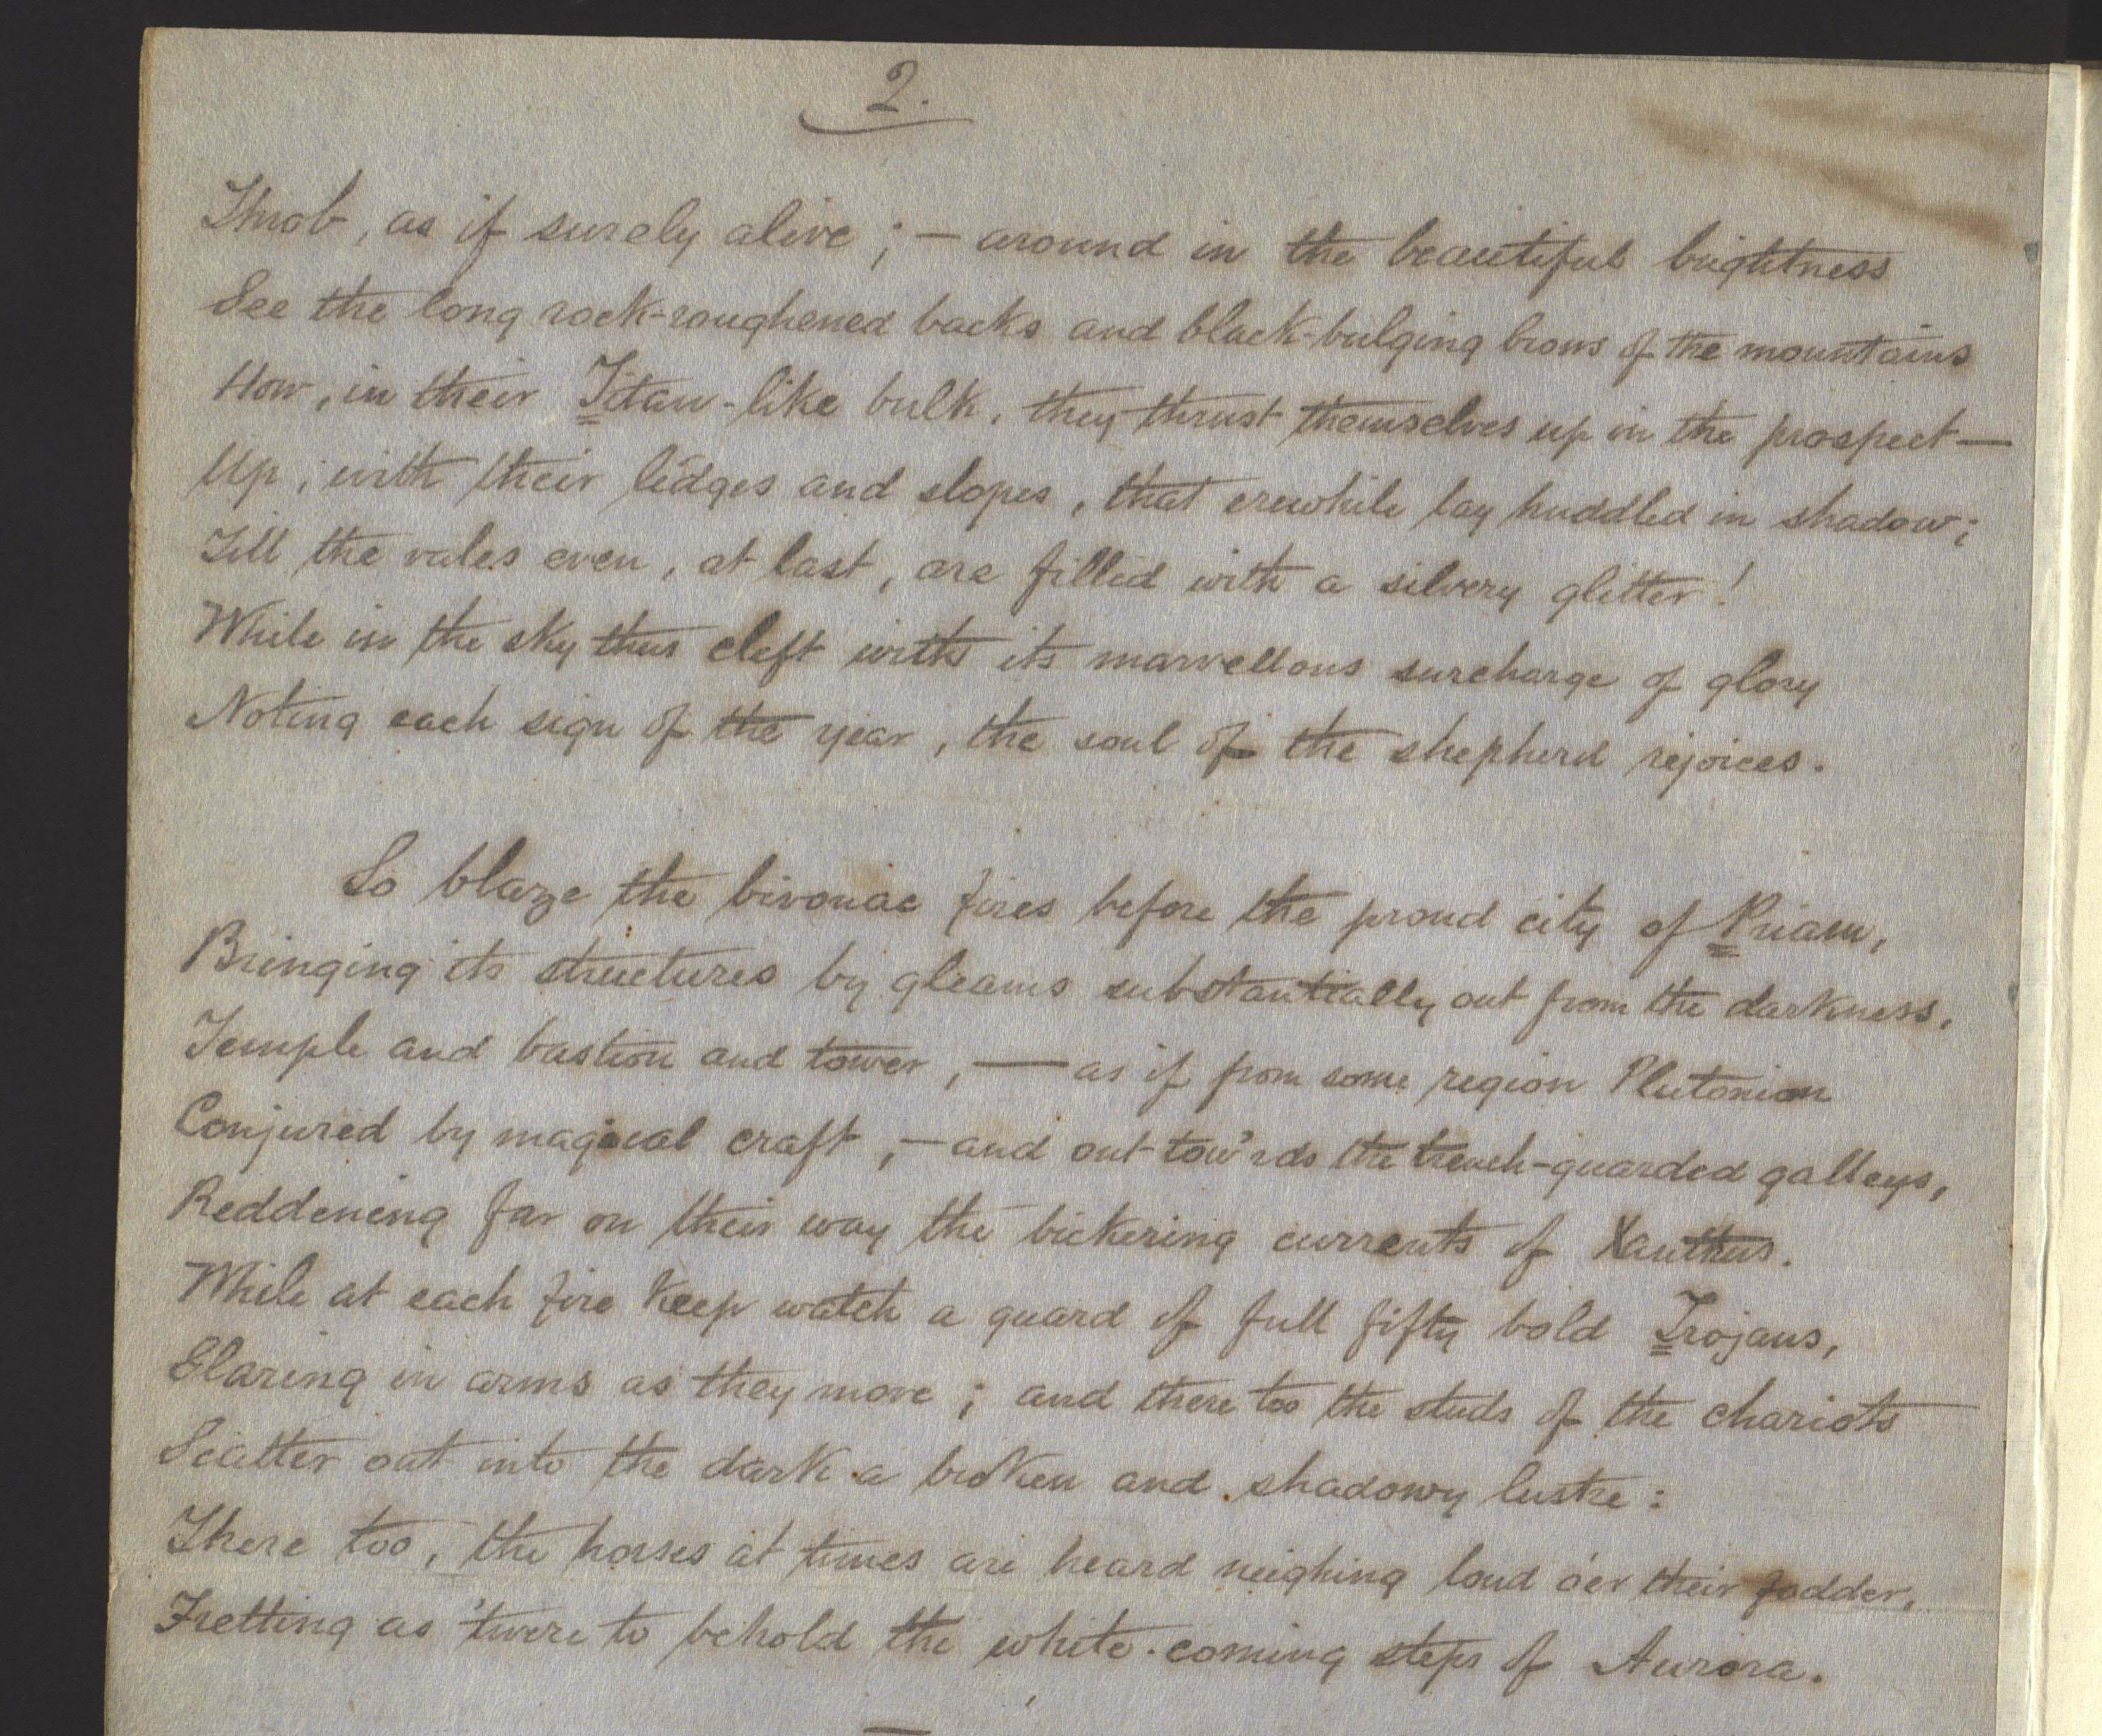 2.
Throb, as if surely alive; — around in the beautiful brightness
See the long rock-roughened backs and black-bulging brows of the mountains
How, in their Titan-like bulk, they thrust themselves up in the prospect—
Up, with their ledges and slopes, that erewhile lay huddled in shadow;
Till the vales even, at last, are filled with a silvery glitter!
While in the sky thus cleft with its marvellous surcharge of glory
Noting each sign of the year, the soul of the shepherd rejoices.
So blaze the bivouac fires before the proud city of Priam,
Bringing its structures by gleams substantially out from the darkness,
Temple and bastion and tower, — as if from some region Plutonian
Conjured by magical craft, — and out tow'rds the trench-guarded galleys,
Reddening far on their way the bickering currents of Xanthus.
While at each fire keep watch a guard of full fifty bold Trojans,
Glaring in arms as they move; and there too the studs of the chariots
Scatter out into the dark a broken and shadowy lustre:
There too, the horses at times are heard neighing loud o'er their fodder,
Fretting as 'twere to behold the white-coming steps of Aurora.